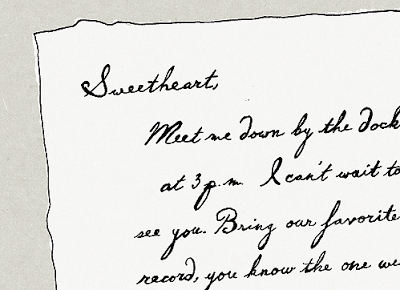 Sweetheart,
Meet me down by the dock
at 3 p.m. I can't wait to
see you. Bring our favorite
record, you know the one we